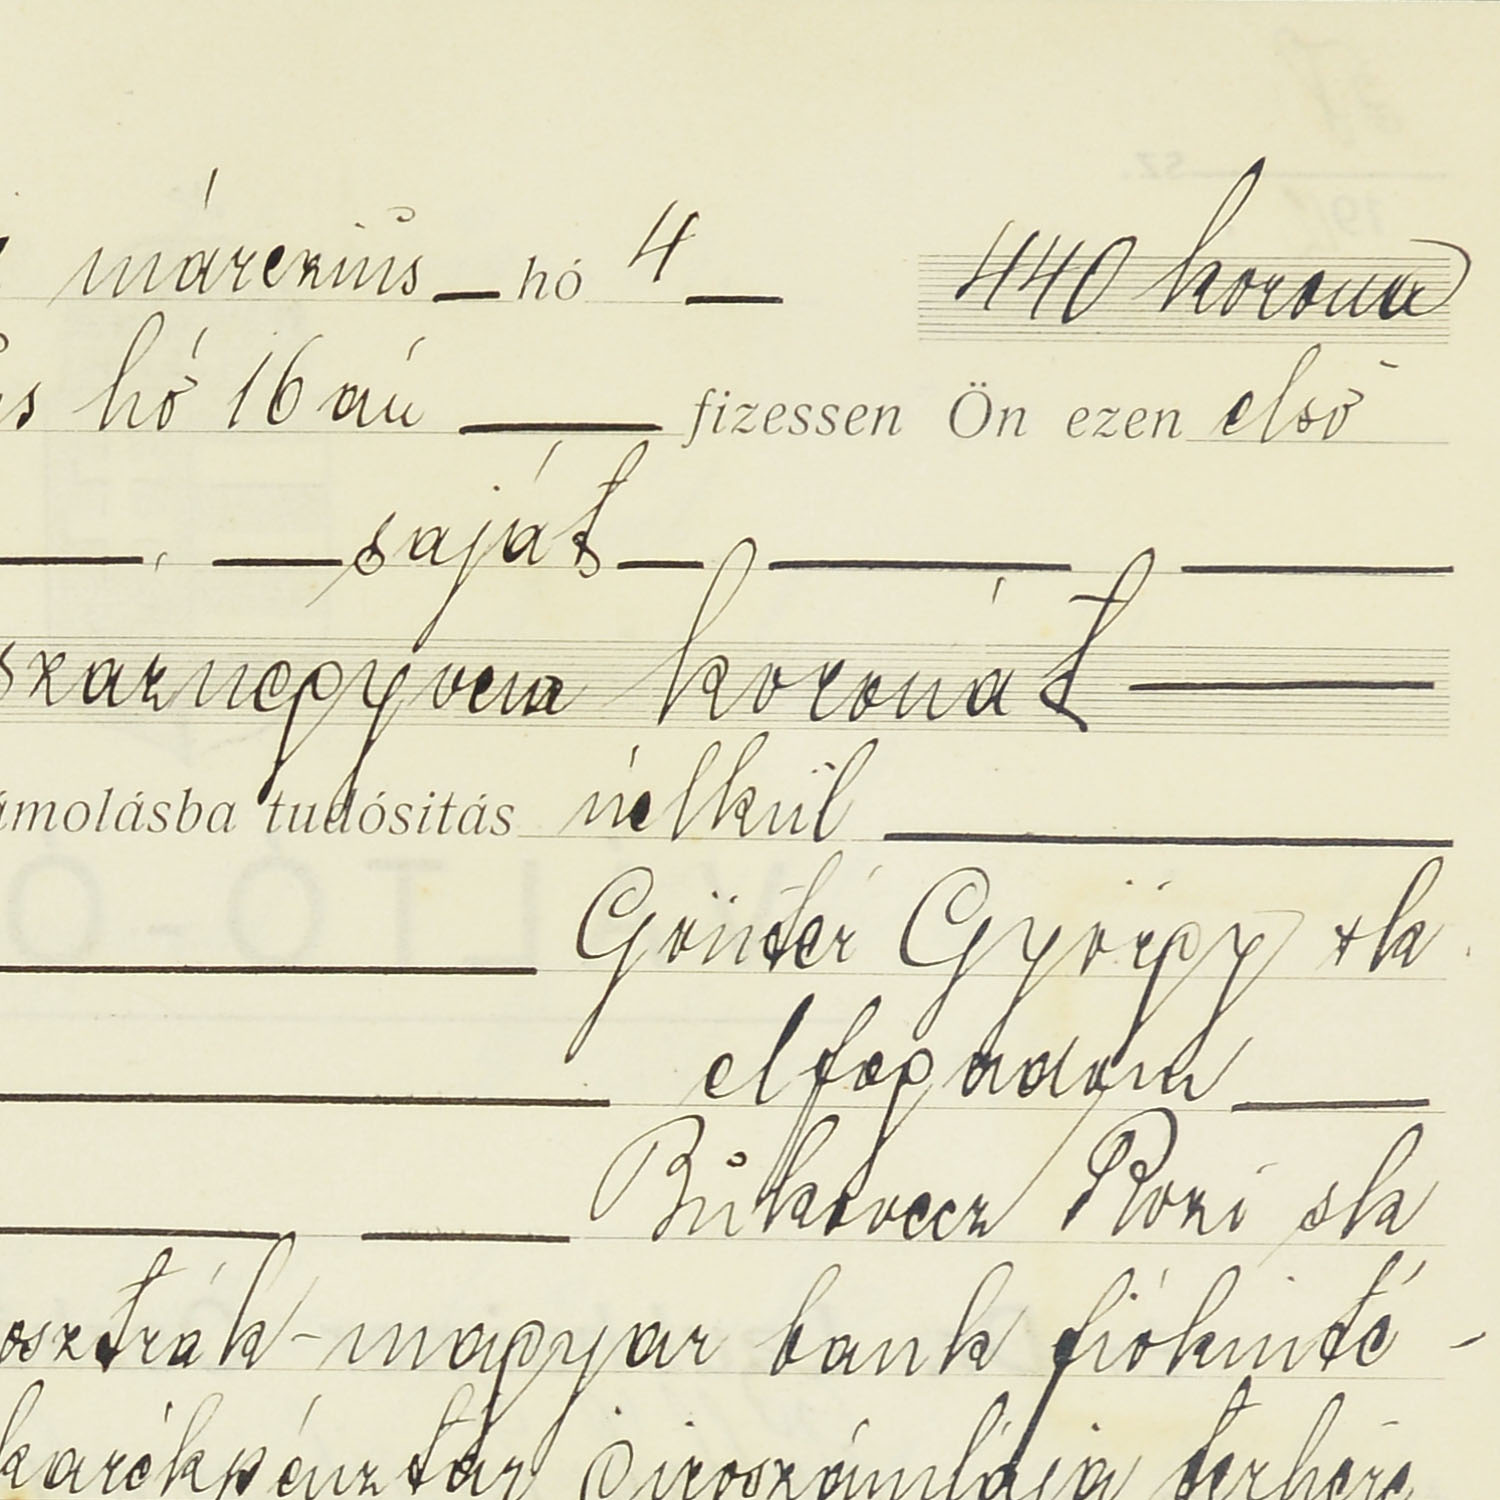 márczius hó 4 440 korona
s hó 16 án fizessen Ön ezen első
saját
száznegyven koronát
ámolásba tudósitás nélkül
Günter György sk
elfogadom
Bukovecz Rozi sk
osztrák-magyar bank fiókinté-
karékpénztár giroszámlája terhére